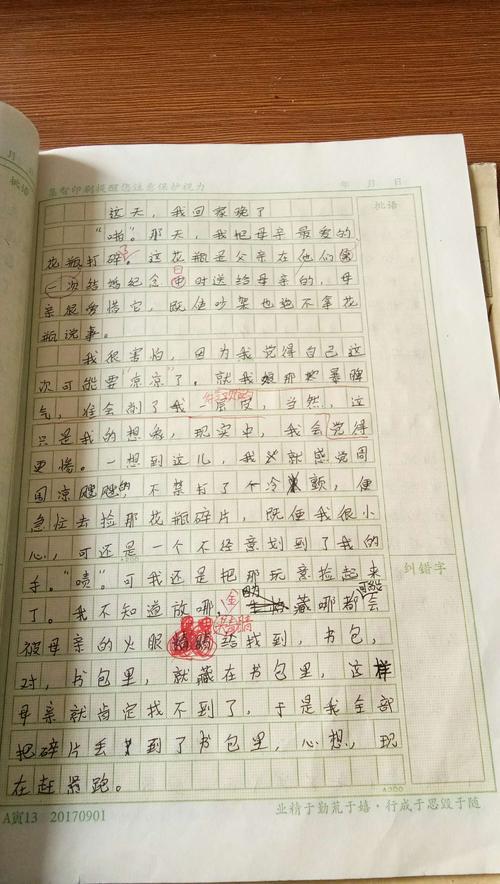 墨香印刷提醒您注意保护视力 年 月 日
月
批语
批语
这天，我回家晚了
“啪”。那天，我把母亲最爱的
花瓶打碎。这花瓶是父亲在他们第
一次结婚纪念日时送给母亲的，母
亲很爱惜它，既使吵架也绝不拿花
瓶说事。
我很害怕，因为我觉得自己这
次可能要“凉凉”了。就我娘那暴脾
气，准会削了我一层皮，当然，这
只是我的想象，现实中，我会觉得
更惨。一想到这儿，我就感觉周
围凉飕飕的，不禁打了个冷颤，便
急忙去捡那花瓶碎片，既便我很小
心，可还是一个不经意划到了我的
手。“啧”。可我还是把那玩意捡起来
了。我不知道放哪，藏哪都可能会
被母亲的火眼金睛给找到，书包，
对，书包里，就藏在书包里，这样
母亲就肯定找不到了，于是我全部
把碎片丢到了书包里，心想，现
在赶紧跑。
纠错字
A寅13 20170901
业精于勤荒于嬉·行成于思毁于随